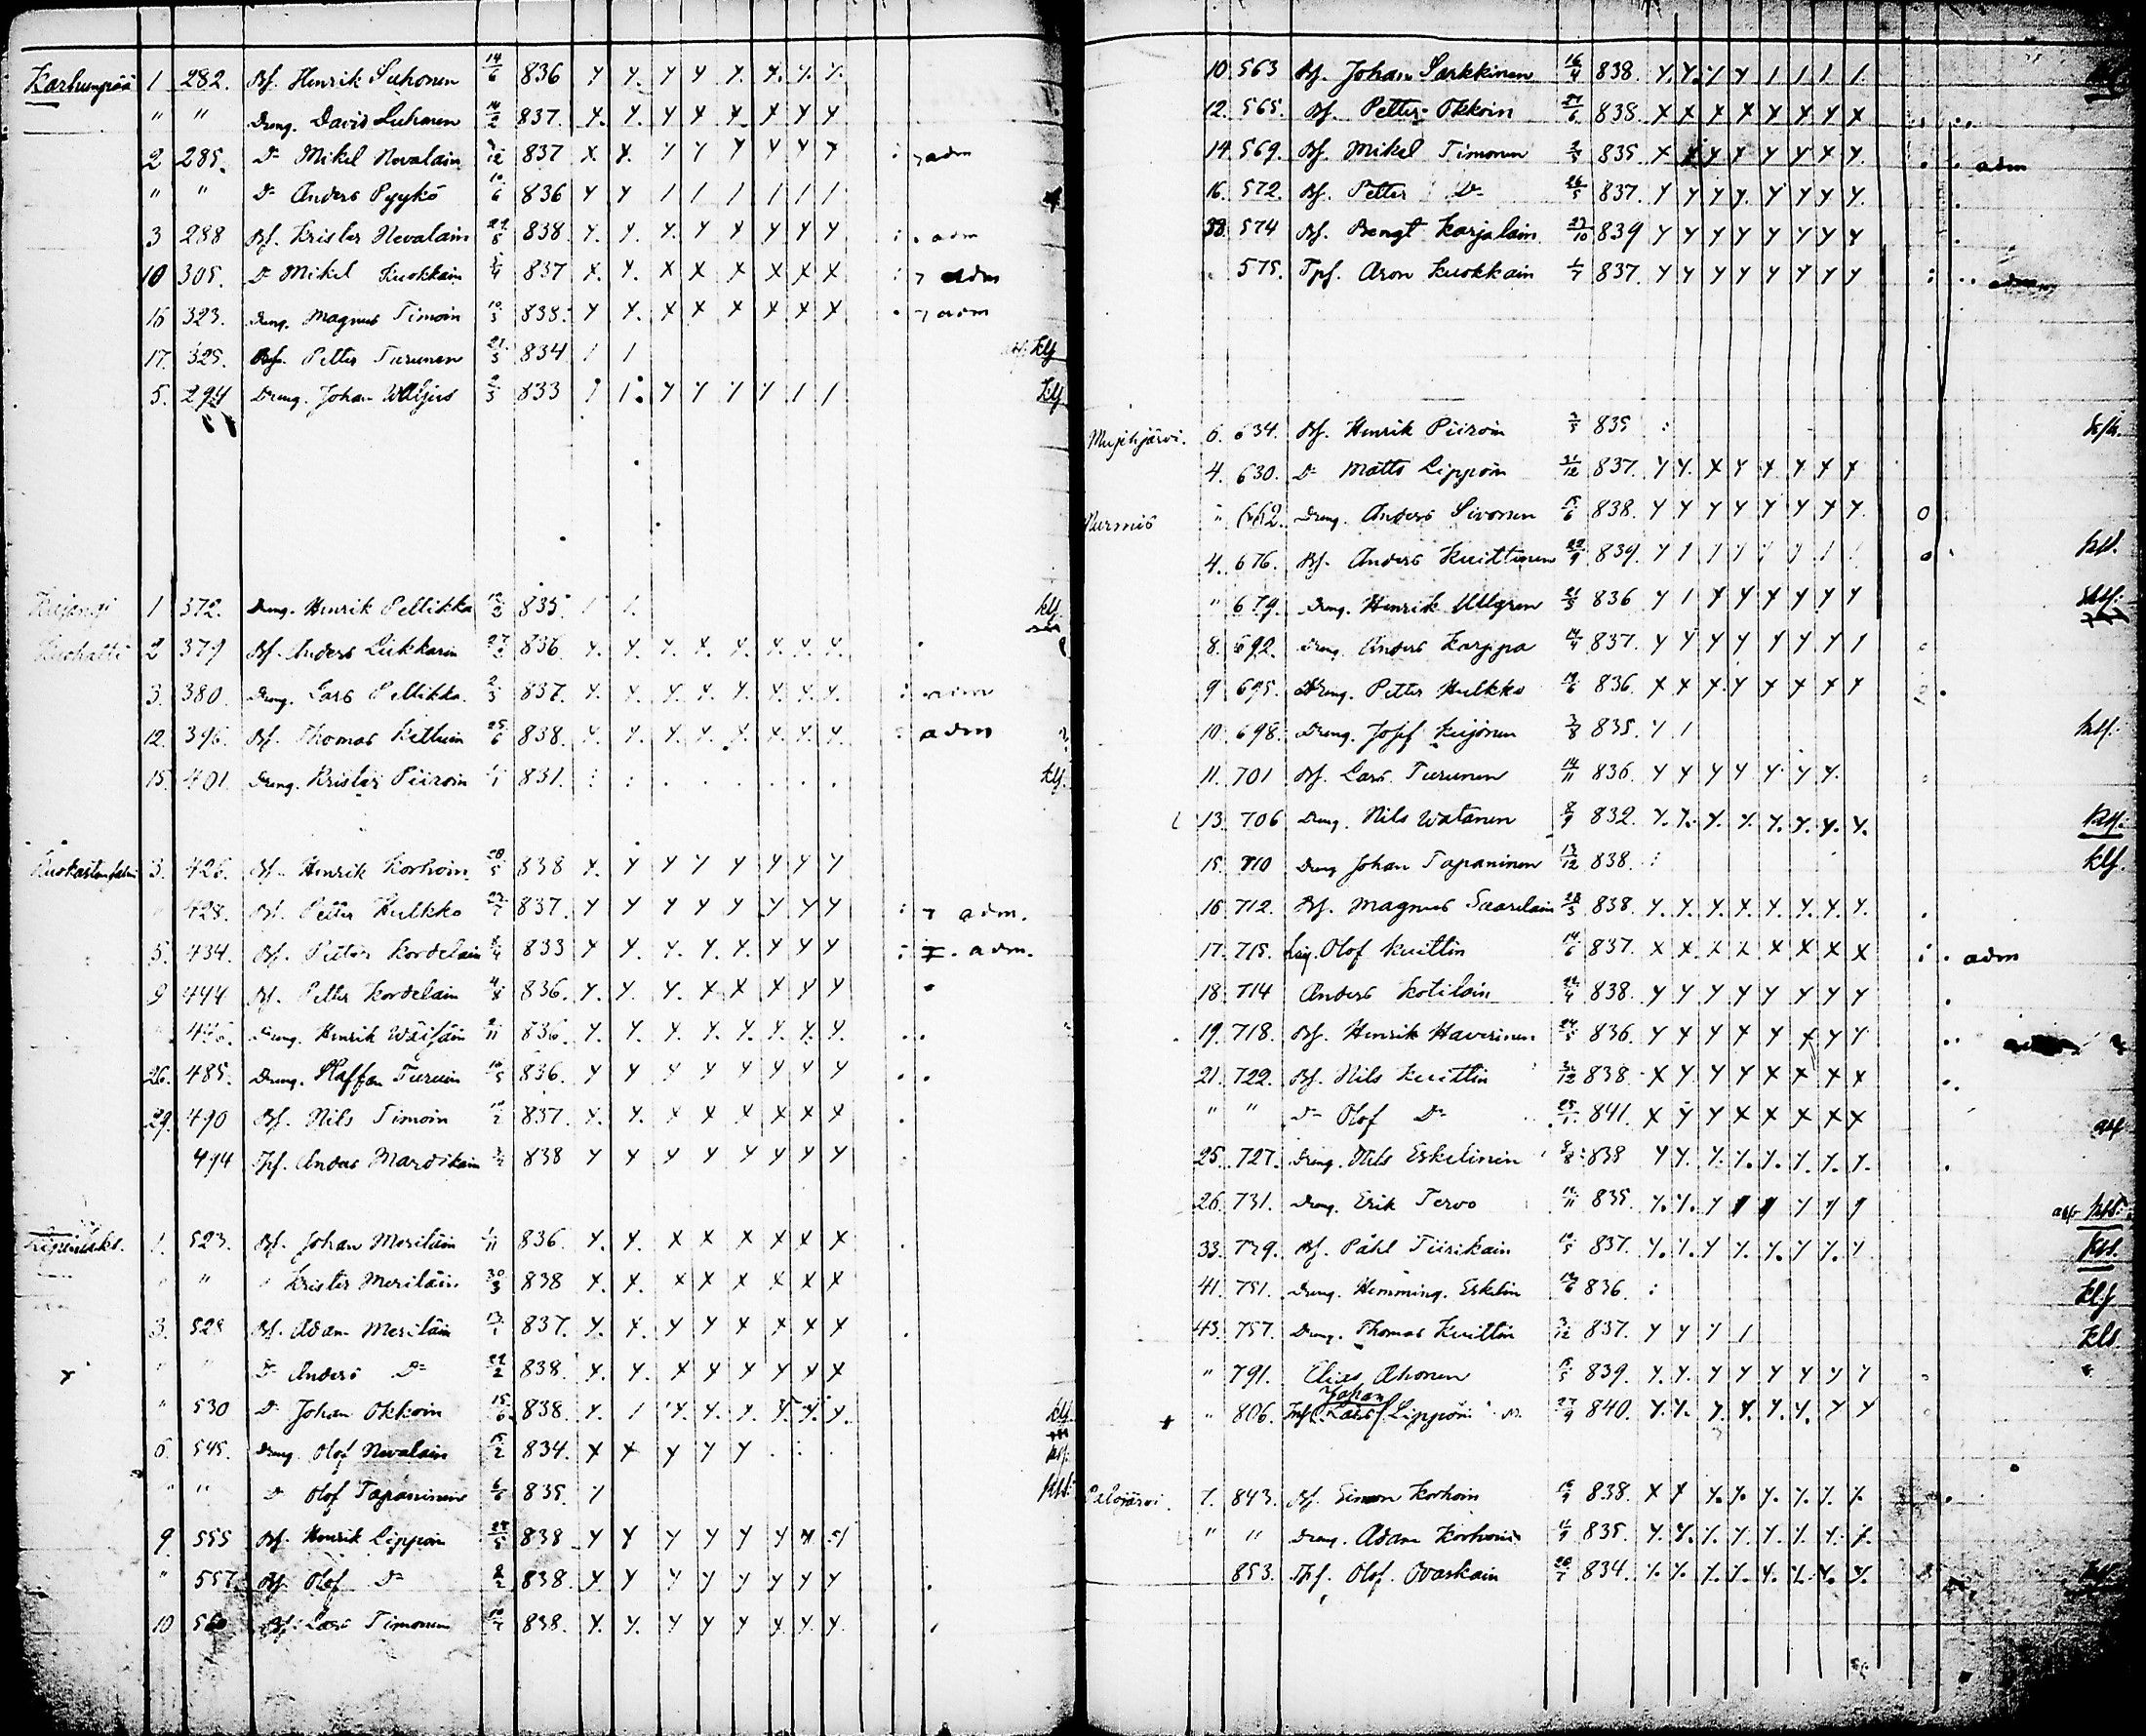 Karhunpää 1 282. Bf. Henrik Suhonen 14/6 836 y y. y y y. y. y. y.
" " Dreng. David Luhanen 14/2 837. y. y. y y y x y y
2 285. D= Mikel Nevalain /12 837 x y. y y y y y y : adm
" " D= Anders Pyykö 10/6 836 y y / / / / / /
3 288 Bf. Krister Nevalain 29/5 838. y. y. y. y y y y y : . adm
10 305. D= Mikel Kuokkain 5/4 837 x. y. x x x x x x : adm
16 323. Dreng. Magnus Timoin 10/3 838. y y. x x x x x x . adm
17. 325. Bf. Petter Turunen 21/3 834 / / klf
5. 294 Dreng. Johan Wäljus 2/3 833 / /. y y y y / / klf
1 372. Dreng. Henrik Peltikka 835. / /. klf
Kuohatti 2 379 Bf. Anders Lukkarin 27 836. y. y. y. x. y. y. y. y. .
3. 380. Dreng. Lars Peltikka. 2/5 837. y. y. y. y. y. y. y. y. : adm
12. 396. Bf. Thomas Kettuin 25/6 838. y. y. y. y. y. x. y. y. : adm
15. 401. Dreng. Krister Piiroin 1/1 831. : : . . . . . . klf.
3. 426. Bf. Henrik Korhoin 28/5 838 x. y y y y y y y
" 428. Bf. Petter Hulkko 837. y y y y y y y y : adm.
5. 434. Bf. Petter Kordelain 833 y y. y. y. y. y y y : adm.
9 444 Bf. Petter Kordelain 4/8 836. y. y. y. x x x y y .
" Dreng. Henrik Wäisäin /11 836. y. y. y. y. y. y. y. y. . .
26. 485. Dreng. Staffan Turuin 10/5 836. y y y y y y y y . .
29. 490 Bf. Nils Timoin 10/2 837. y. y. x x x x x x .
494 Tpf. Anders Mardikain 838 y y y y y y y y
1. 523. Bf. Johan Meriläin 1/11 836. y. y. x x x x x x .
" " " Krister Meriläin 30/3 838 x x. x x x x x x
3. 528 Bf. Adam Meriläin 13/1 837. y. x. y y x x x x .
" " D= Anders D= 22/2 838. y. x. x y y y x x
" 530 D= Johan Okkoin 15/6 838. y. / y. y. y. y. y. y. klf
6. 545. Dreng. Olof Nevalain 15/2 834. x x y y y . : . klf.
" " D= Olof Tapaninen 6/6 835. y
9 555 Bf. Henrik Lippoin 28/5 838 y y y y y y y y
" 557 Bf. Olof D= 8/2 838. y y y y y y y y .
10 560 Bf. Lars Timonen 838. y. y. y y y y. y. y. .
10. 563 Bf. Johan Sarkkinen 16/4 838. y. y. y y / / / /.
12. 565. Bf. Petter Okkoin 27/6 838. x x x x x x y x
14. 569. Bf. Mikel Timonen 2/5 835 x x y y y y x y. . . adm
16. 572. Bf. Petter D= 26/5 837. y y y y. y y y y. .
574 Bf. Bengt Karjalain 23/10 839 y y y y y y y y .
575. Tpf. Aron Kuokkain 1/7 837. y y y y y y y y : . . adm
Mujejärvi. 6. 634. Bf. Henrik Piiroin 835 : klf.
4. 630. D= Matts Lippoin 21/12 837. y y. x y x y x x
Nurmis " 662. Dreng. Anders Sivonen 15/6 838. y y y y y y y y. o
4. 676. Bf. Anders Kuittinen 29/9 839. y / / y y y / / o . klf.
" 679. Dreng. Henrik Ullgren 21/5 836 y / y y y y y y
8. 692. Dreng. Anders Karppa 14/4 837. y y y y y y y / o
9 695. Dreng. Petter Hulkko 19/6 836. x x x y y x x y .
10. 698. Dreng. Josef Kujonen 3/8 835. y / klf.
11. 701 Bf. Lars. Turunen 14/11 836. y y y y y. y y. :
13. 706 Dreng. Nils Watanen 8/9 832. y. y. y. y. y. y. y. y. klf.
15. 710 Dreng Johan Tapaninen 13/12 838. : klf.
16. 712. Bf. Magnus Saarelain 28/3 838. y. y. y. y. y. y. y. y. .
17. 715. Olof Kuittin 14/6 837. x x. x x x x x x : . adm
18. 714 Anders Kotilain 22/4 838. y y y y y y y y .
19. 718. Bf. Henrik Haverinen 24/5 836. y y y y y x y y . .
21. 722. Bf. Nils Kuittin /12 838. x y y y x x x x . .
" " D= Olof D= 25/1 841. x y y x x x x x
25. 727. Dreng. Nils Eskelinin 8/8 838 y y. y. y. y. y. y. y. .
26. 731. Dreng. Erik Tervo 11/11 835. y. y. y y y y y y
33. 739. Bf. Påhl Tiirikain 10/5 837. y. y. y y. y. y y. y klf.
41. 751. Dreng. Hemming. Eskelin 14/6 836. : klf
43. 757. Dreng. Thomas Kuittin 3/12 837. y y y / klf.
" 791. Elias Ahonen 15/5 839. y. y. y y y y y y
Johan
" 806. Inh. Lars Lippoin 27/9 840. y. y. y. y. y. y. y y
Palojärvi. 7. 843. Bf. Simon Korhoin 838. x x y. y. y. y. y. y.
" " Dreng. Adam Korhonen 835. y. y. y. y. y. y. y. y.
853. Tpf. Olof. Ovaskain 28/7 834. y. y. y. y. y. y. y. y.